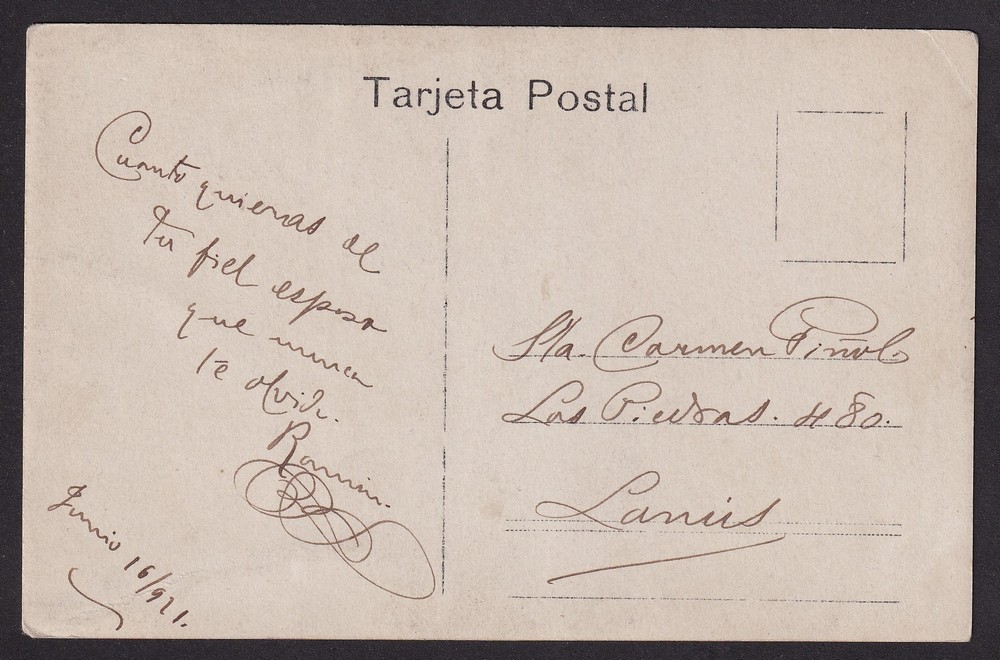 Tarjeta Postal
Cuanto quieras de
tu fiel esposo
que nunca
te olvida.
Ramón.
Junio 16/921.
Sta. Carmen Piñol
Las Piedras. 480.
Lanús